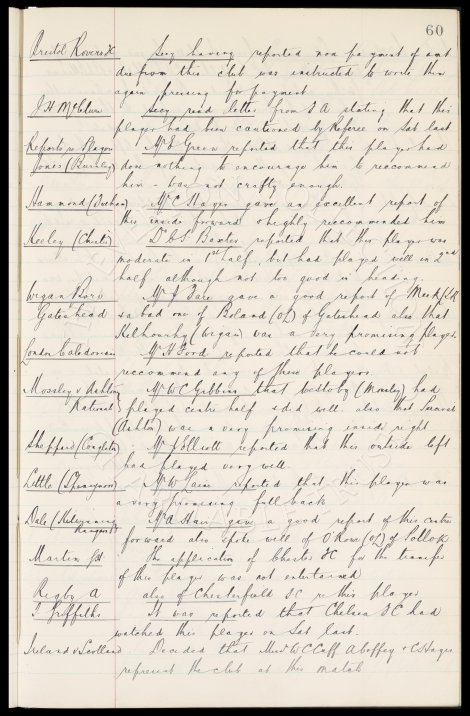 60
Bristol Rovers FC Secy having reported non payment of amt
due from this club was instructed to write them
again pressing for payment
J H McGlure Secy read letter from F A stating that this
player had been cautioned by Referee on Sat last
Reports v Mr E Green reported that this player had
Jones (Burnley) done nothing to encourage him to reccommend
him - was not crafty enough.
Hammond (Durham) Mr C Hayes gave an excellent report of
this inside forward & highly reccommended him
Keeley (Chester) Dr C S Baxter reported that this player was
moderate in 1st half but had played well in 2nd
half although not too good in heading.
Wigan Boro Mr J Fare gave a good report of
Gateshead & a bad one of Boland (OL) of Gateshead also that
(Wigan) was a very promising player.
London Caledonian Mr H Ford reported that he could not
recommend any of these players
Mossley v Ashton Mr W C Gibbins that (Mossley) had
National played centre half & did well. also that
(Ashton) was a very promising inside right
Sheppard (Congleton) Mr J Elliott reported that this outside left
had played very well.
Little (Spennymoor) Mr W reported that this player was
a very promising full back
Dale (Kilwinning Mr A Hair gave a good report of this centre
Rangers) forward also spoke well of O'Rore (OL) of Pollok
Martin GH The application of Chester FC for the transfer
of this player was not entertained
Rigby A also of Chesterfield FC re this player
T Griffiths It was reported that Chelsea FC had
watched this player on Sat last.
Ireland v Scotland Decided that W C Cuff A Coffey & C Hayes
represent the club at this match